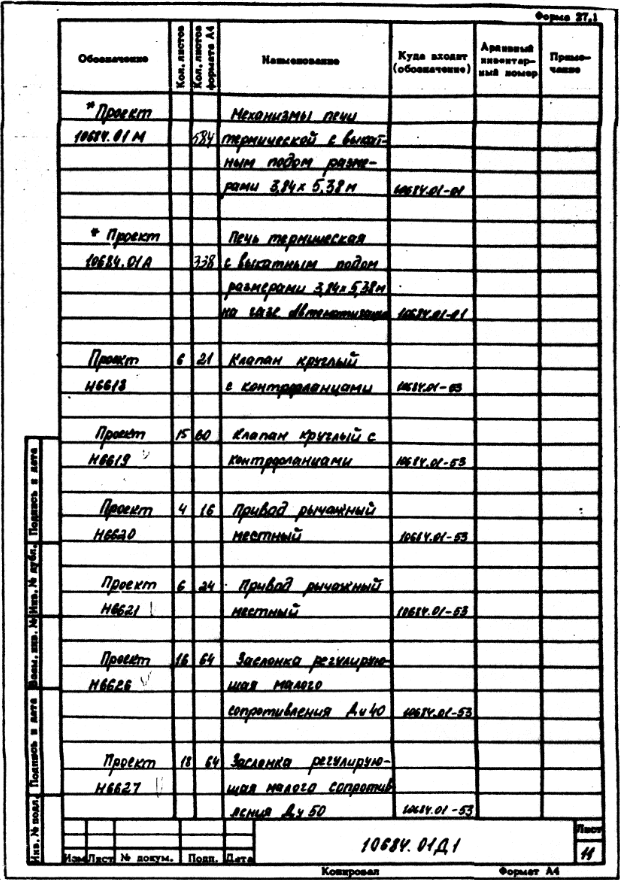 Форма 27.1
Обозначение Кол. листов Кол. листов формата А4 Наименование Куда входит (обозначение) Архивный инвентарный номер Примечание
*Проект Механизмы печи
10684.01 М 584 термической с выкат-
ным подом разме-
рами 3,84 х 5,38 м 10684.01-01
* Проект Печь термическая
10684.01А 338 с выкатным подом
размерами 3,84х5,38м
на газе Автоматизация 10684.01-01
Проект 6 21 Клапан круглый
Н6618 с контрфланцами 10684.01-53
Проект 15 60 Клапан круглый с
Н6619 контрфланцами 10684.01-53
Проект 4 16 Привод рычажный
Н6620 местный 10684.01-53
Проект 6 24 Привод рычажный
Н6621 местный 10684.01-53
Проект 16 64 Заслонка регулирую-
Н6626 щая малого
сопротивления Ду 40 10684.01-53
Проект 18 64 Заслонка регулирую-
Н6627 щая малого сопротив
ления Ду 50 10684.01-53
Инв. № подл. Подпись и дата Взам. инв. № Инв. № дубл. Подпись и дата
Изм Лист № докум. Подп. Дата
10684.01Д1
Лист
11
Копировал Формат А4